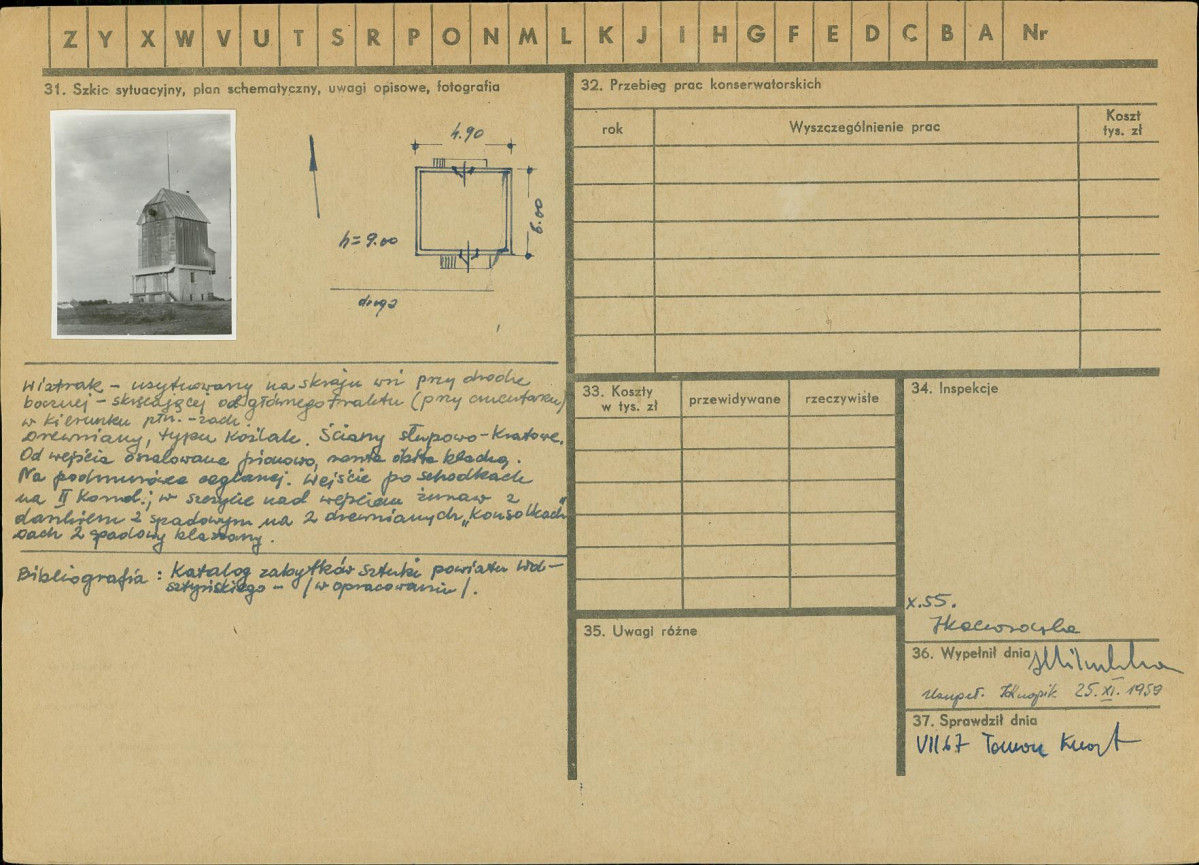 Z Y X W V U T S R P O N M L K J I H G F E D C B A Nr
31. Szkic sytuacyjny, plan schematyczny, uwagi opisowe, fotografia
4.90
6.00
h = 9.00
droga
Wiatrak – usytuowany na skraju wsi przy drodze
bocznej – skręcającej od głównego traktu (przy cmentarzu)
w kierunku płn. – zach.
Drewniany, typu koźlak. Ściany słupowo-kratowe.
Od wejścia oszalowane pionowo, reszta obita blachą.
Na podmurówce ceglanej. Wejście po schodkach
na II kond.; w szczycie nad wejściem żuraw z
daszkiem 2 spadowym na 2 drewnianych „konsolkach"
Dach 2 spadowy blaszany.
Bibliografia : Katalog zabytków sztuki powiatu Wol-
sztyńskiego – /w opracowaniu/.
32. Przebieg prac konserwatorskich
rok
Wyszczególnienie prac
Koszt
tys. zł
33. Koszty
w tys. zł
przewidywane
rzeczywiste
34. Inspekcje
X.55.
35. Uwagi różne
36. Wypełnił dnia
Uzupeł. 25.XI.1959
37. Sprawdził dnia
VII 67